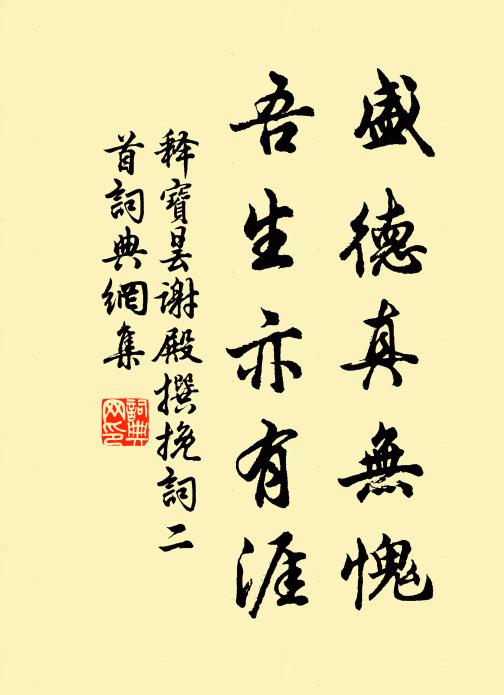 盛德真無愧
吾生亦有涯
释寶曇谢殿撰挽詞二
首詞典網集
詞典
网印